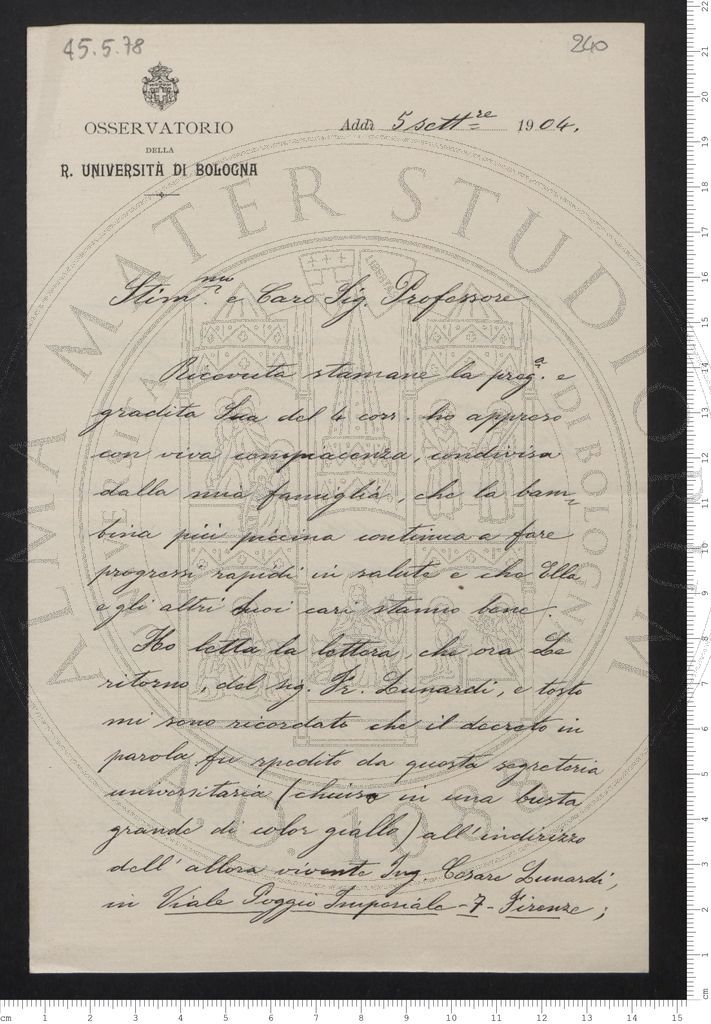 45.5.78
240
OSSERVATORIO
DELLA
R. UNIVERSITÀ DI BOLOGNA
Addì 5 sett.re 1904.
Stim.mo e Caro Sig. Professore
Ricevuta stamane la preg.a e
gradita Sua del 4 corr. ho appreso
con viva compiacenza, condivisa
dalla mia famiglia, che la bam=
bina più piccina continua a fare
progressi rapidi in salute e che Ella
e gli altri suoi cari stanno bene.
Ho letta la lettera, che ora Le
ritorno, del sig. Fr. Lunardi, e tosto
mi sono ricordato che il decreto in
parola fu spedito da questa segreteria
universitaria (chiuso in una busta
grande di color giallo) all'indirizzo
dell'allora vivente Ing. Cesare Lunardi,
in Viale Poggio Imperiale - 7 - Firenze;
ALMA MATER STUDIORUM
A.D. 1088
LIBERTAS